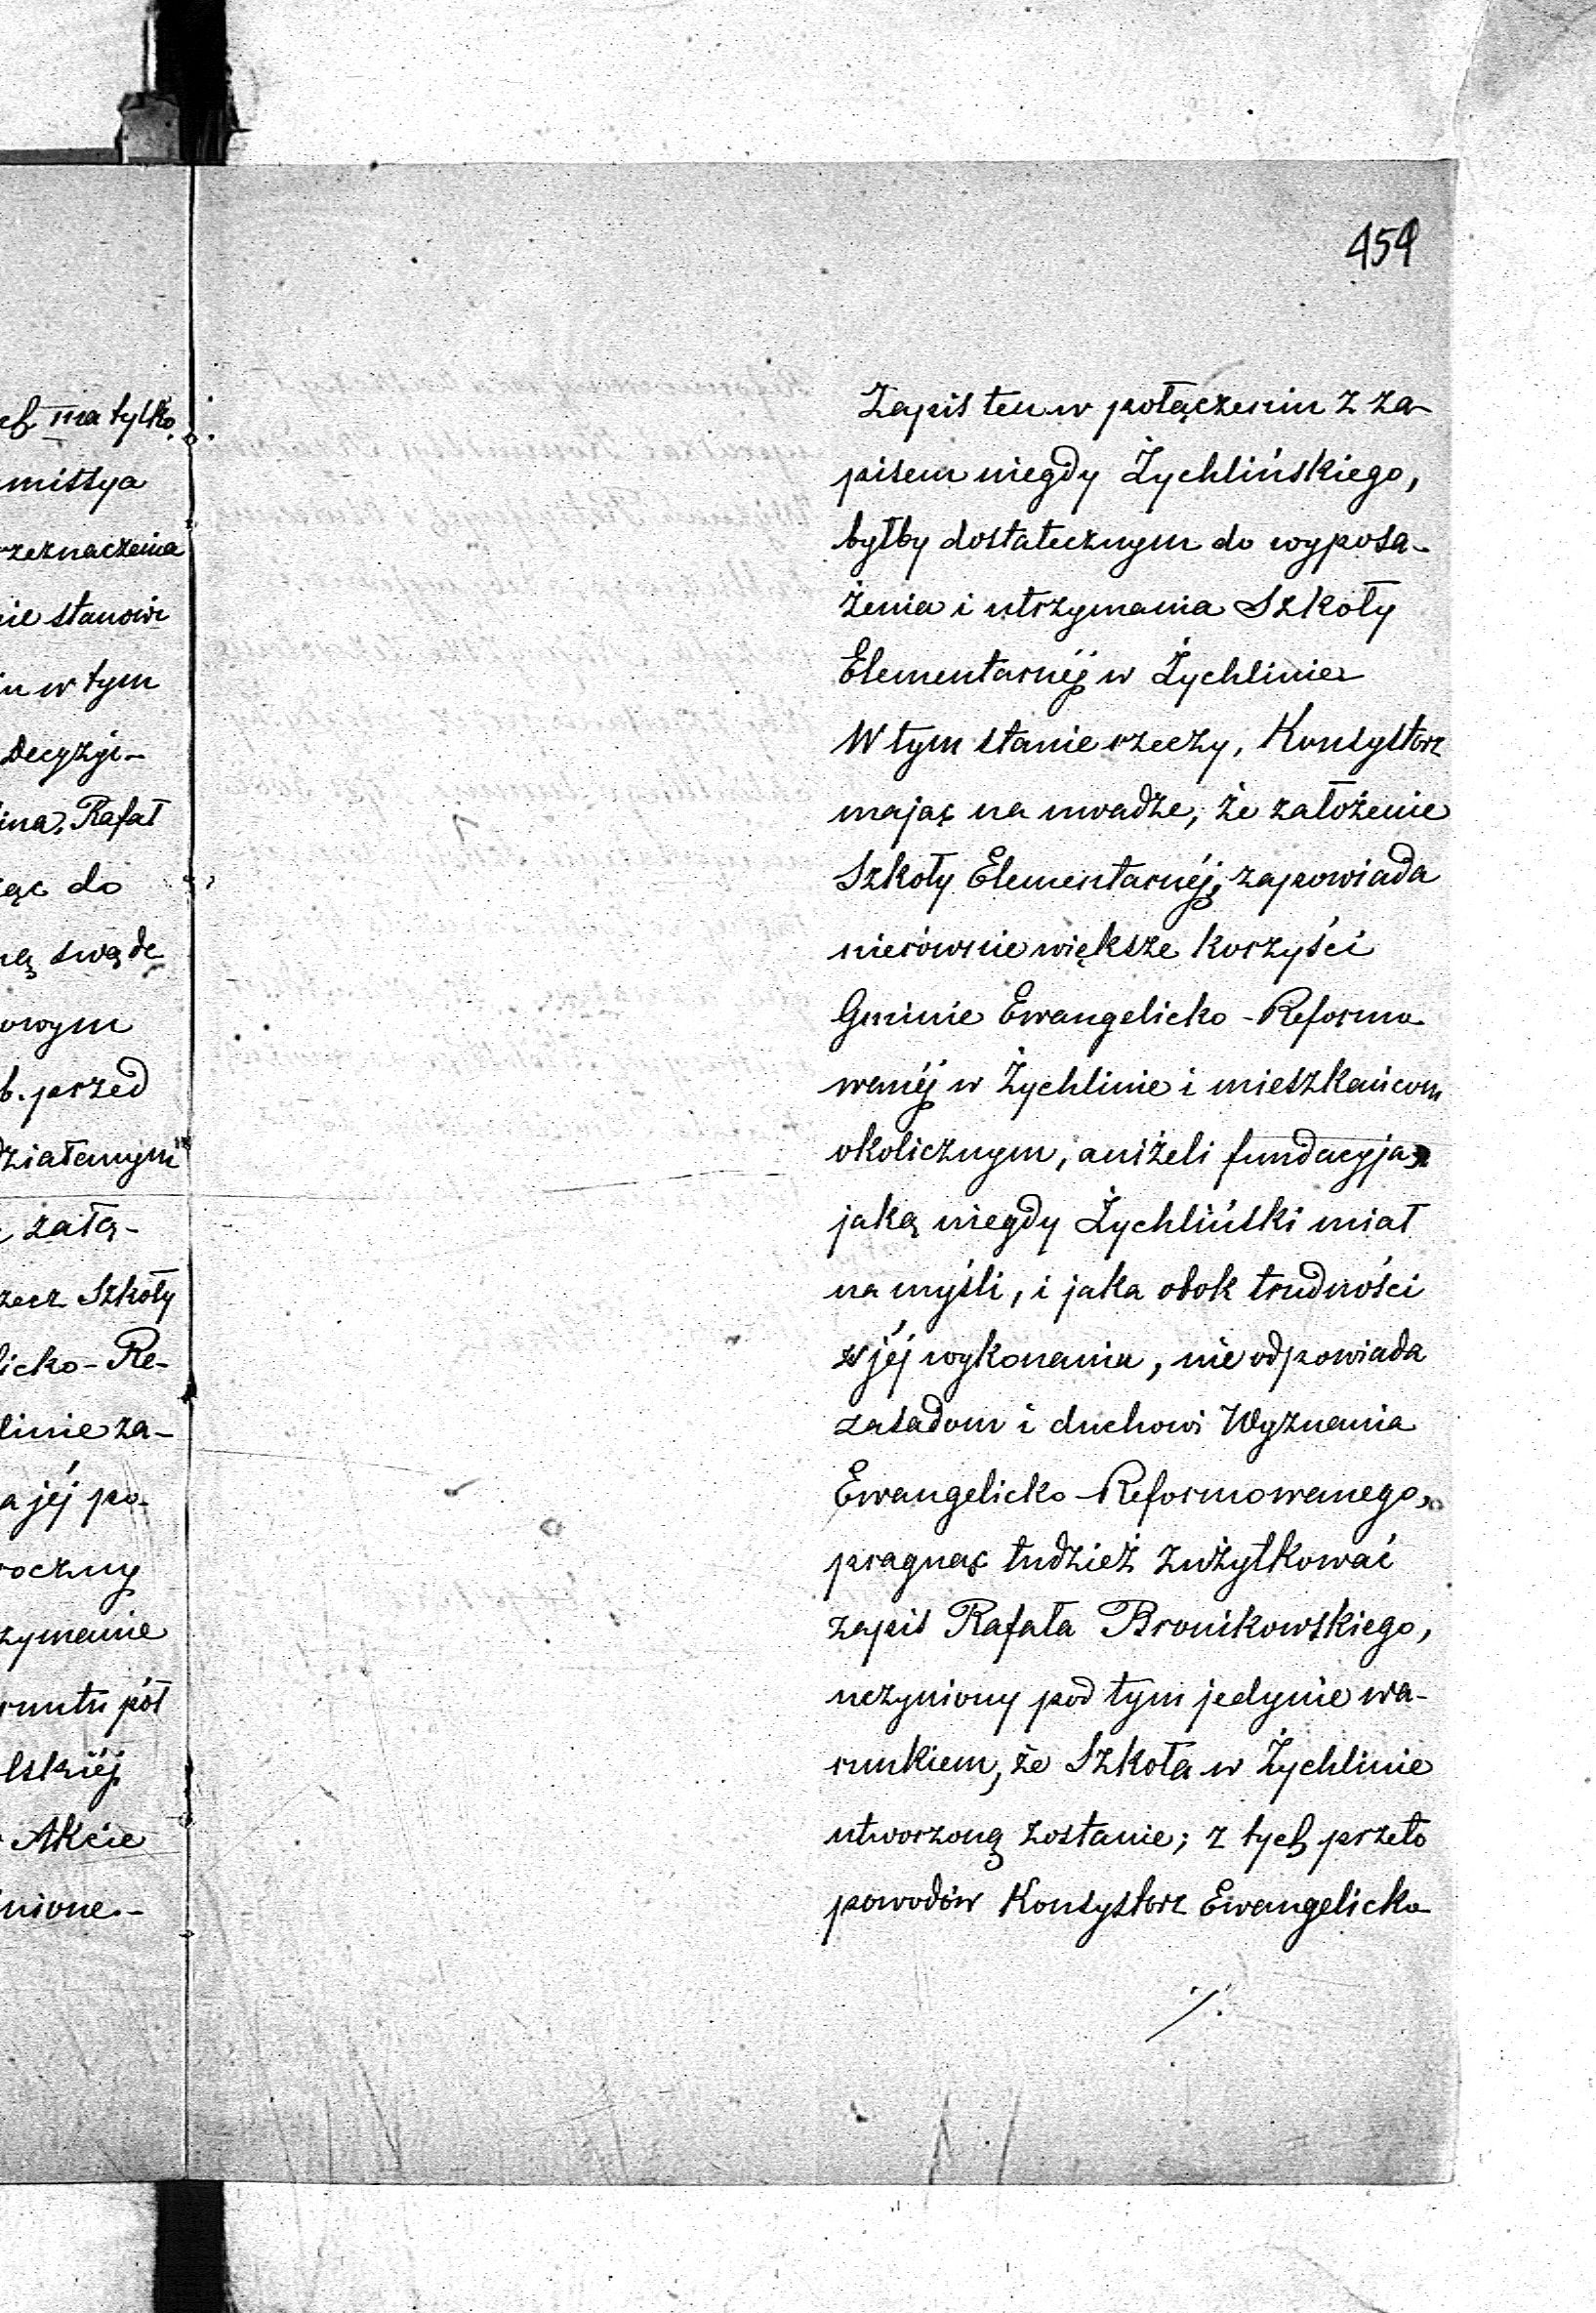 454
ch ma tylko
missya
rzeznaczenia
nie stanowi
iu w tym
Decyzyi-
ina, Rafał
ąc do
ną swą de
owym
b. przed
działanym
zała-
rzecz Szkoły
licko-Re-
linie za-
a jéj po-
roczny
zymanie
runtu pół
lskiéj
Akcie
nione.-
Zapis ten w połączeniu z za-
pisem niegdy Żychlińskiego,
byłby dostatecznym do wyposa-
żenia i utrzymania Szkoły
Elementarnéj w Żychlinie
W tym stanie rzeczy, Konsystorz
mając na uwadze, że założenie
Szkoły Elementarnéj, zapowiada
nierównie większe korzyści
Gminie Ewangelicko-Reformo-
wanéj w Żychlinie i mieszkańcom
okolicznym, aniżeli fundacyja
jaką niegdy Żychliński miał
na myśli, i jaka obok trudności
w jéj wykonaniu, nie odpowiada
zasadom i duchowi Wyznania
Ewangelicko-Reformowanego,
pragnąc tudzież zużytkować
zapis Rafała Bronikowskiego,
uczyniony pod tym jedynie wa-
runkiem, że Szkoła w Żychlinie
utworzoną zostanie; z tych przeto
powodów Konsystorz Ewangelicko-
./.